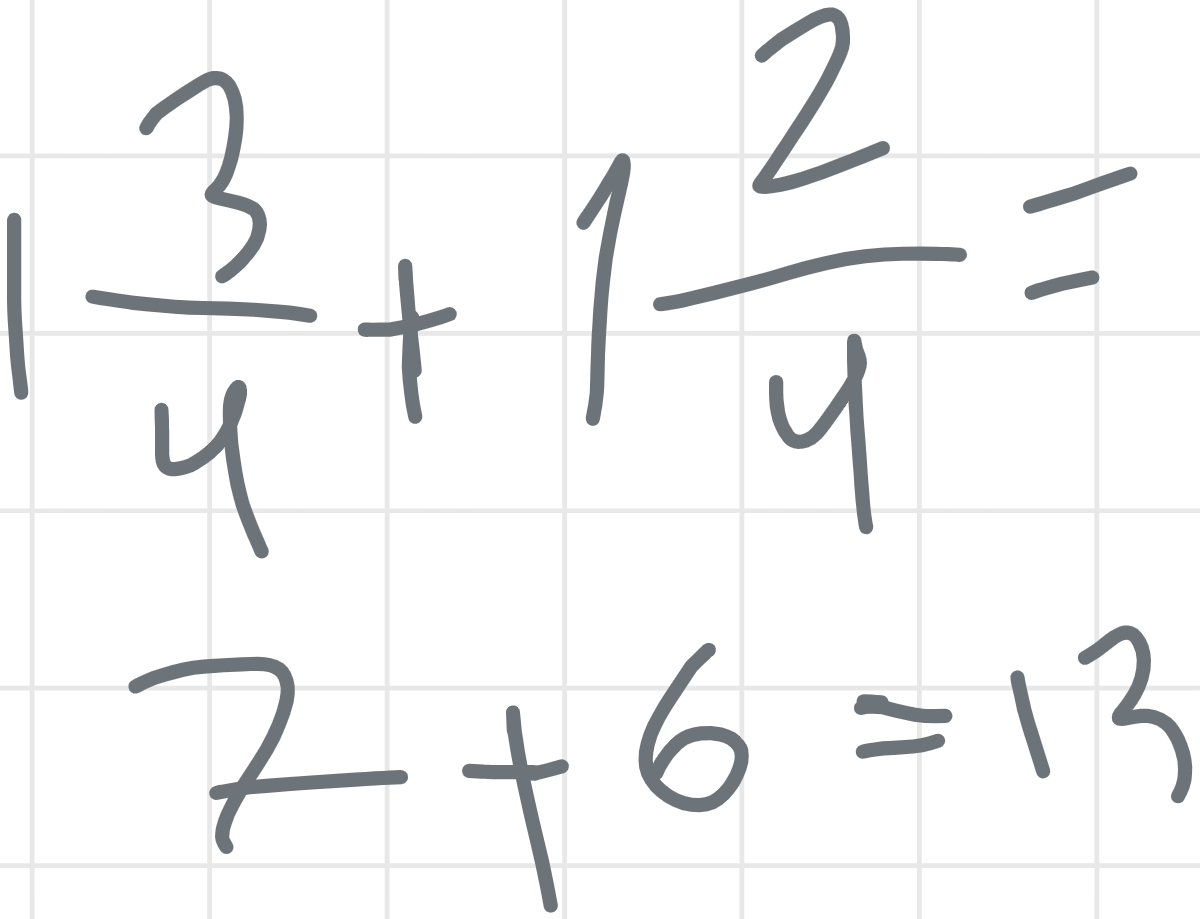 1 3/4 + 1 2/4 =
7 + 6 = 13